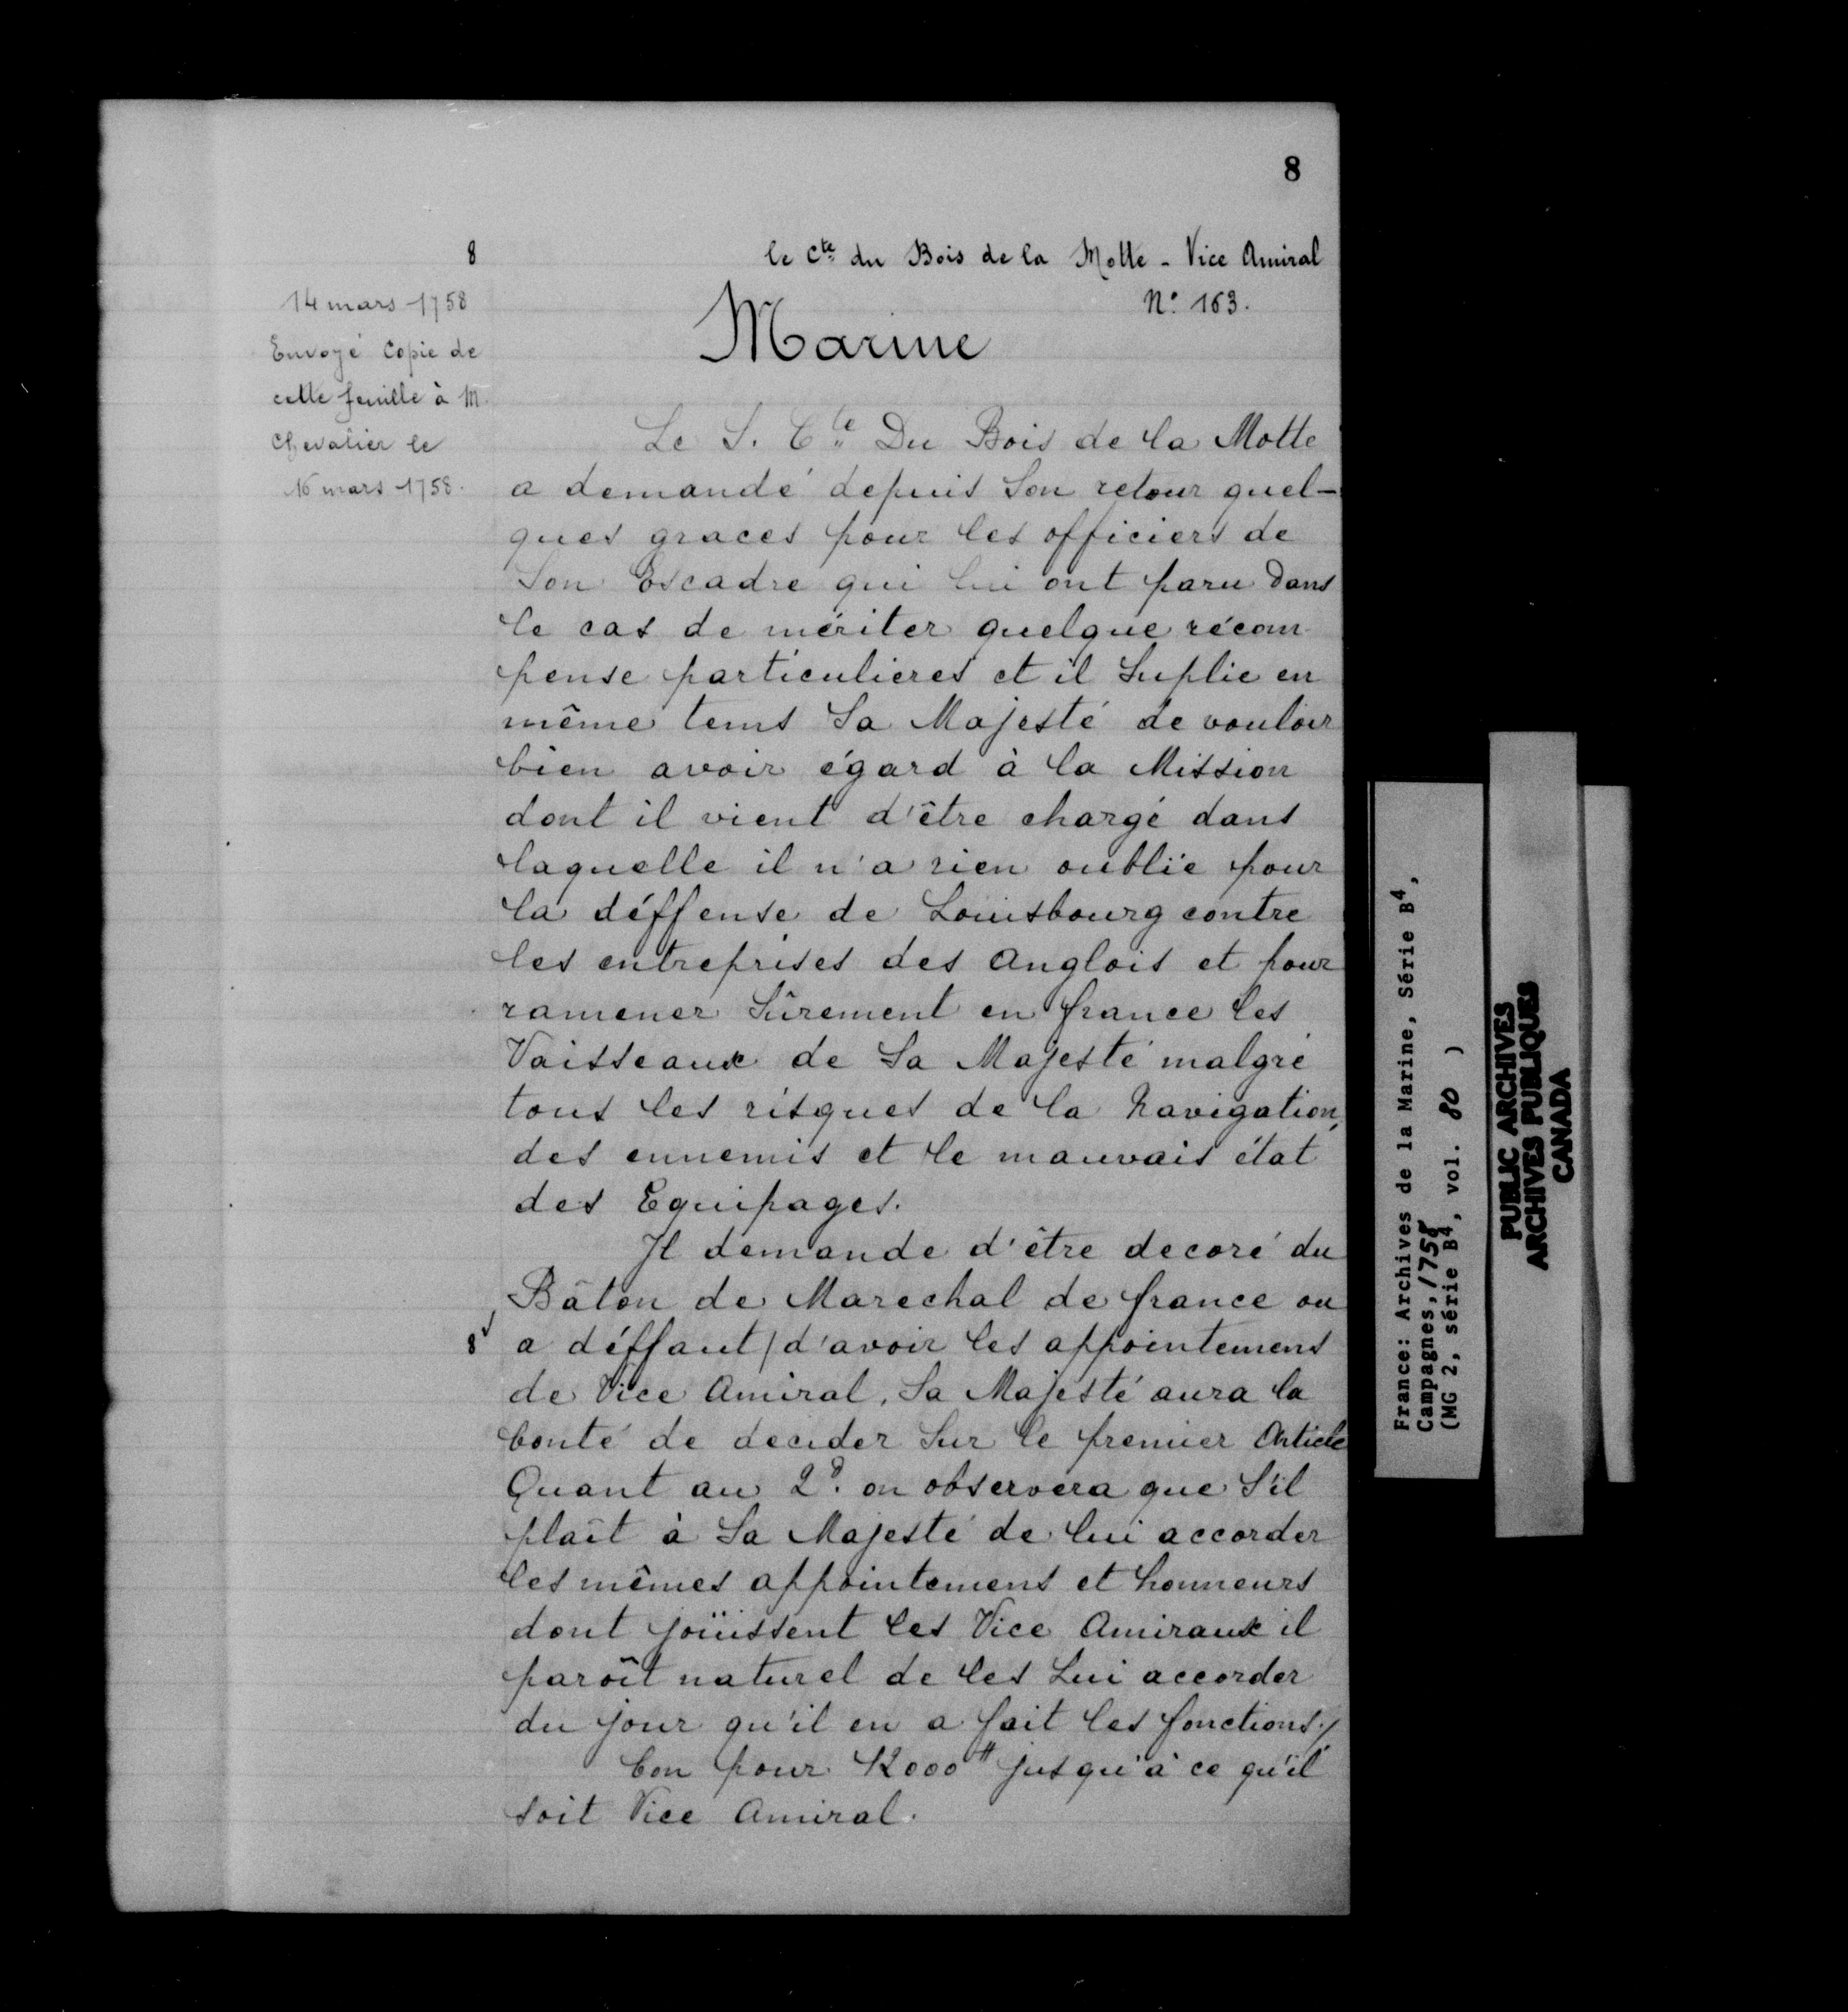 8
8
le Cte du Bois de la Motte - Vice Amiral
N° 163.
14 mars 1758
Envoyé Copie de
cette feuille à M.
Chevalier le
16 mars 1758.
Marine
Le S. Cte Du Bois de la Motte
a demandé depuis Son retour quel-
ques graces pour les officiers de
Son Escadre qui lui ont paru dans
le cas de mériter quelque récom-
pense particulieres et il Suplie en
même tems Sa Majesté de vouloir
bien avoir égard à la Mission
dont il vient d'être chargé dans
laquelle il n'a rien oublié pour
la déffense de Louisbourg contre
les entreprises des Anglois et pour
ramener Sûrement en france les
Vaisseaux de Sa Majesté malgré
tous les risques de la Navigation,
des ennemis et le mauvais état
des Equipages.
Il demande d'être decoré du
Bâton de Marechal de france ou
8v a déffaut / d'avoir les appointemens
de Vice Amiral, Sa Majesté aura la
bonté de decider Sur le premier Article
Quant au 2d. on observera que S'il
plaît à Sa Majesté de lui accorder
les mêmes appointemens et honneurs
dont joüissent les Vice Amiraux il
paroît naturel de les Lui accorder
du jour qu'il en a fait les fonctions ./.
bon pour 12000# jusqu'à ce qu'il
soit Vice Amiral.
France: Archives de la Marine, Série B4,
Campagnes, 1758
(MG 2, série B4, vol. 80 )
PUBLIC ARCHIVES
ARCHIVES PUBLIQUES
CANADA